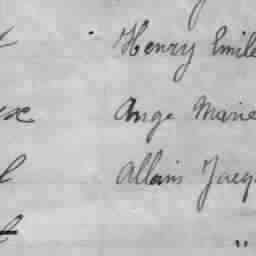 Henry Emile
Ange Marie
Allain Jacq
"